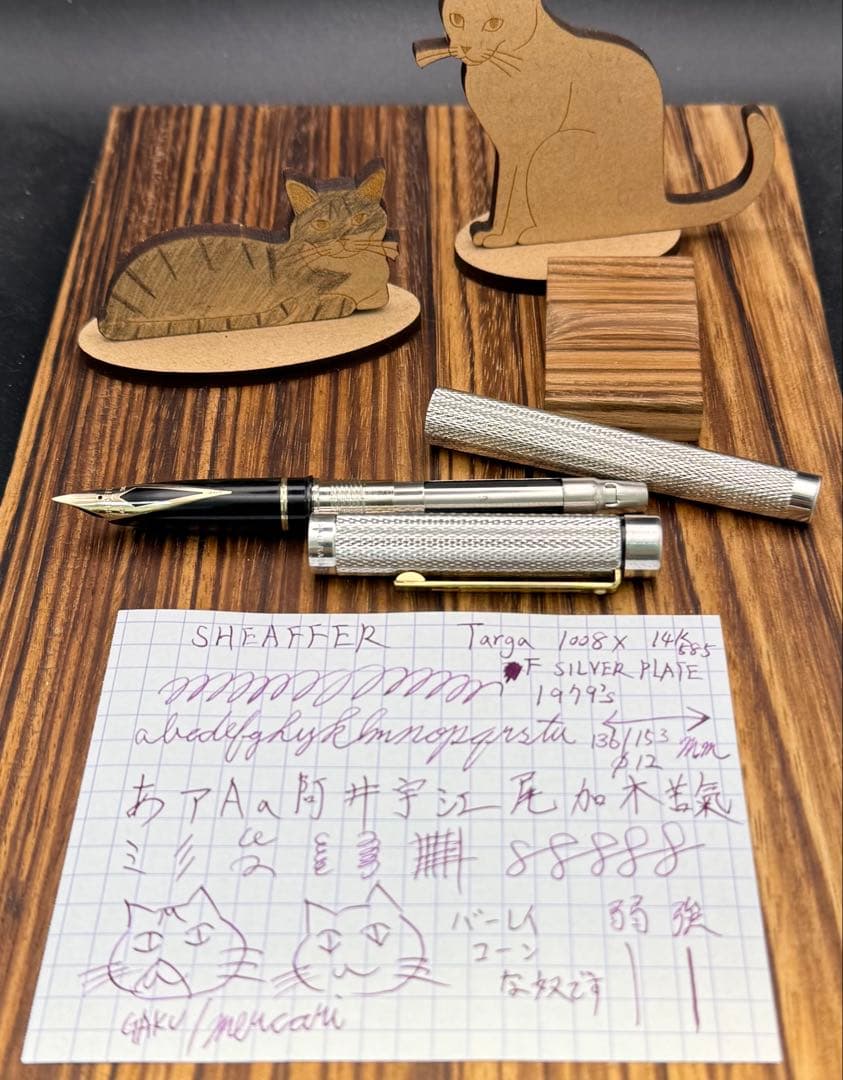 SHEAFFER Targa 1008X 14K 585
F SILVER PLATE
1979's
abcdefghyjklmnopqrstu 136/153 mm
φ12
あ ア A a 阿 井 宇 江 尾 加 木 氣
バーレイ 弱 強
コーン
な奴です
GAKU/mercari